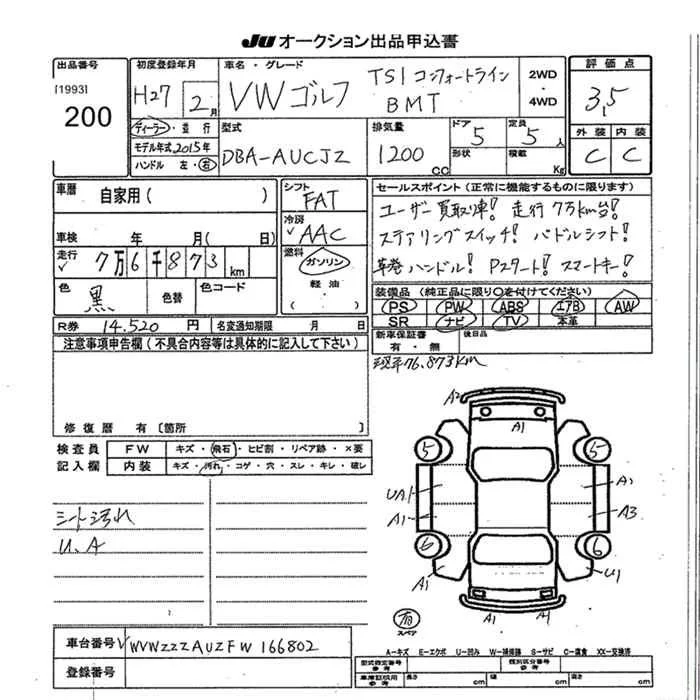 JU オークション出品申込書
出品番号
[1993]
200
初度登録年月
H27 2月
車名・グレード
VW ゴルフ TSI コンフォートライン
BMT
2WD
・
4WD
評価点
3.5
外装 内装
C C
ディーラー・並行
モデル年式 2015年
ハンドル 左・右
型式
DBA-AUCJZ
排気量
1200 CC
ドア 5
形状
定員 5人
積載 Kg
車歴 自家用( )
車検 年 月( 日)
走行 7万6千873km
色 黒 色替 色コード
シフト
FAT
冷房
AAC
燃料
ガソリン
軽油
( )
セールスポイント(正常に機能するものに限ります)
ユーザー買取車! 走行7万km台!
ステアリングスイッチ! パドルシフト!
革巻ハンドル! Pスタート! スマートキー!
装備品(純正品に限り○を付けてください)
PS PW ABS エアB AW
SR ナビ TV 本革
新車保証書 有・無 後日品
R券 14.520 円 名変通知期限 月 日
現車76.873km
注意事項申告欄(不具合内容等は具体的に記入して下さい)
修復歴 有〔箇所 〕
検査員 FW キズ・飛石・ヒビ割・リペア跡・×要
記入欄 内装 キズ・汚れ・コゲ・穴・スレ・キレ・破レ
シート汚れ
U.A
A2
A1
5 5
UA1 A1
A1 A3
6 6
A1 U1
A1 A1
有
スペア
車台番号 WVWZZZAUZFW166802
登録番号
A-キズ E-エクボ U-凹み W-補修跡 S-サビ C-腐食 XX-交換済
型式指定番号 参考 類別区分番号 参考
車庫証取用 参考 長さ cm 幅 cm 高さ cm